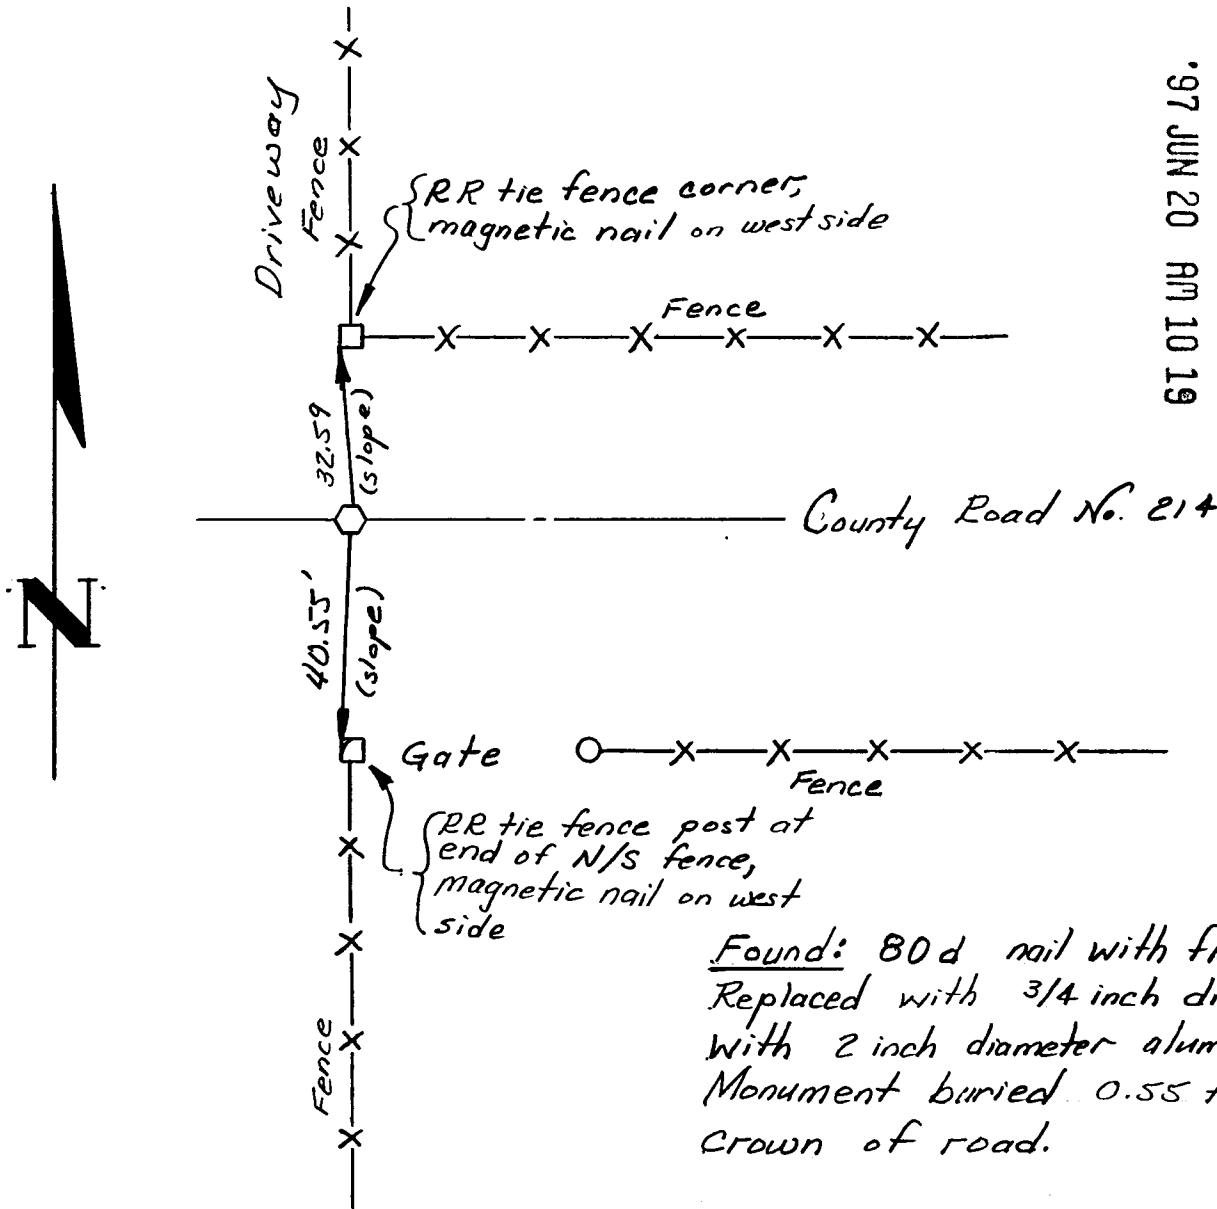 '97 JUN 20 AM 10 19
Driveway
Fence
RR tie fence corner,
magnetic nail on west side
Fence
32.59
(slope)
County Road No. 214
N
40.55'
(slope)
Gate
Fence
RR tie fence post at
end of N/S fence,
magnetic nail on west
side
Fence
Found: 80d nail with
Replaced with 3/4 inch
with 2 inch diameter
Monument buried 0.55
crown of road.